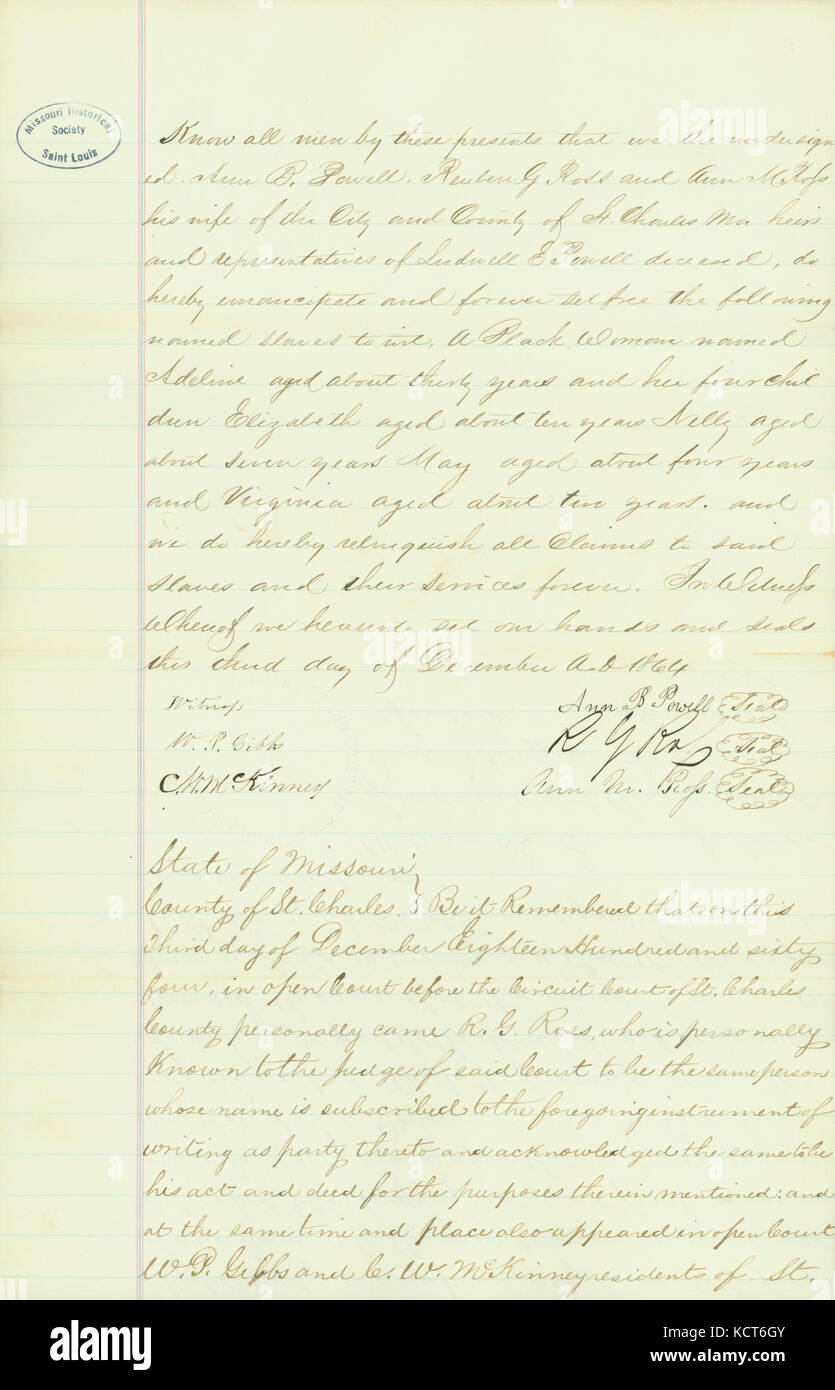 Missouri Historical
Society
Saint Louis
Know all men by these presents that we the undersign
ed. Ann B. Powell, Reuben G Ross and Ann M Ross
his wife of the City and County of St Charles Mo. heirs
and representatives of Ludwell E Powell deceased, do
hereby emancipate and forever set free the following
named slaves to wit, A Black Woman named
Adeline aged about thirty years and her four chil
dren Elizabeth aged about ten years Nelly aged
about seven years May aged about four years
and Virginia aged about two years. and
we do hereby relinquish all Claims to said
slaves and their services forever. In Witness
Whereof we hereunto set our hands and seals
this third day of December A.D 1864
Witness
Ann B Powell Seal
W. P. Gibbs
R G Ross Seal
C.W. McKinney
Ann M. Ross. Seal
State of Missouri
County of St. Charles. } Be it Remembered that on this
Third day of December Eighteen Hundred and sixty
four, in open Court before the Circuit Court of St. Charles
County personally came R. G. Ross, who is personally
Known to the Judge of said Court to be the same person
whose name is subscribed to the foregoing instrument of
writing as party thereto and acknowledged the same to be
his act and deed for the purposes therein mentioned: and
at the same time and place also appeared in open Court
W. P. Gibbs and C. W. McKinney residents of St.
alamy
Image ID: KCT6GY
www.alamy.com